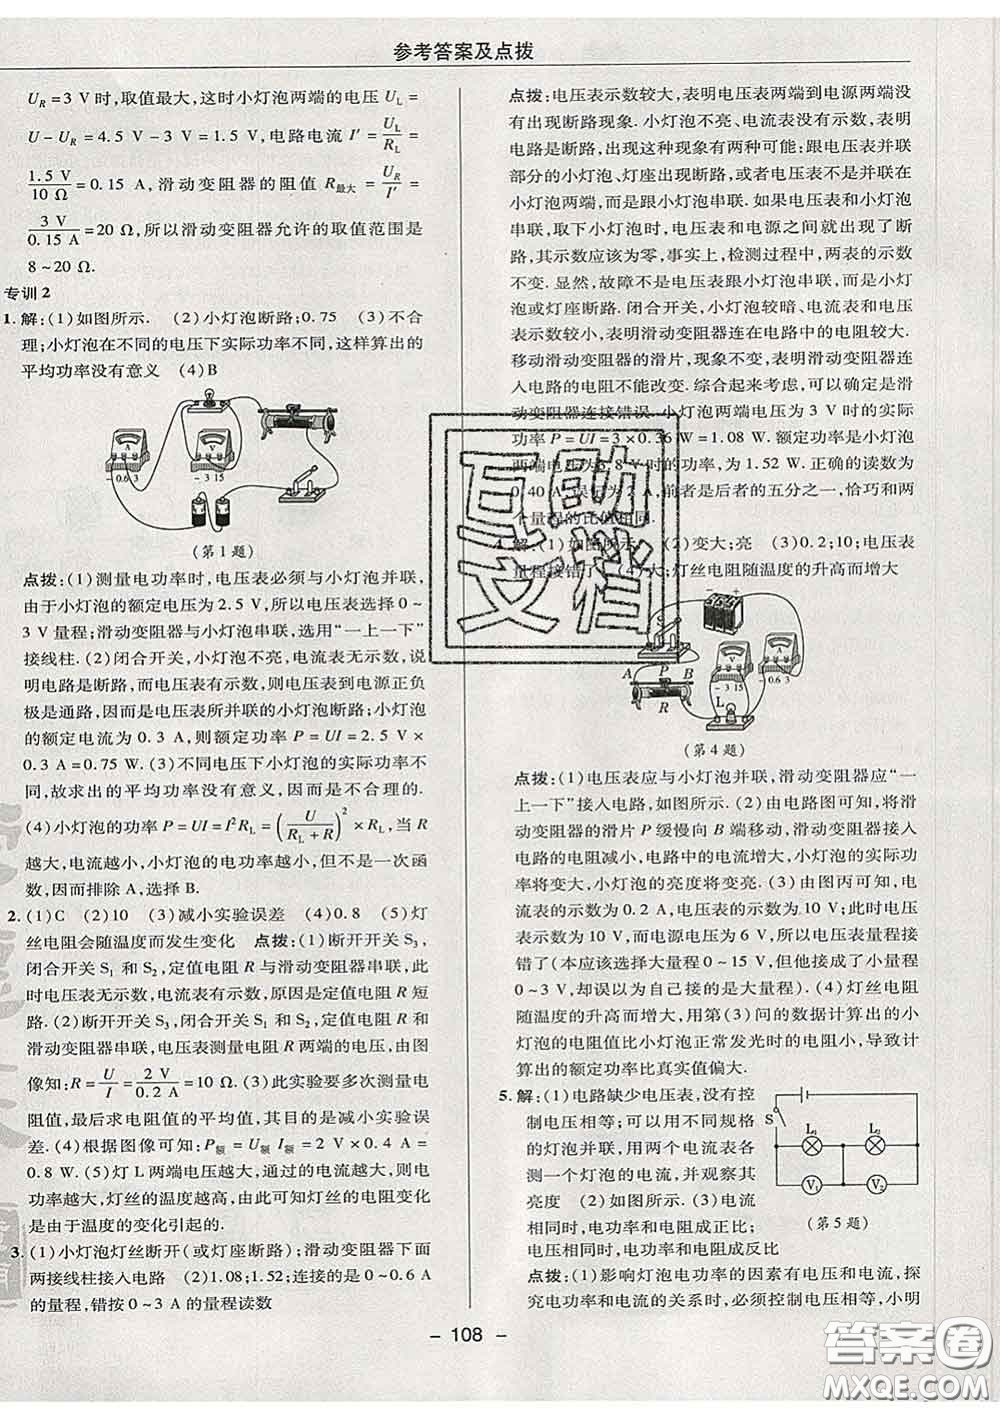 参考答案及点拨
U_R=3 V时,取值最大,这时小灯泡两端的电压U_L=
U-U_R=4.5 V-3 V=1.5 V,电路电流 I'=U_L/R_L=
1.5 V/10 Ω=0.15 A,滑动变阻器的阻值 R_最大=U_R/I'=
3 V/0.15 A=20 Ω,所以滑动变阻器允许的取值范围是
8~20 Ω.
专训2
1.解:(1)如图所示. (2)小灯泡断路;0.75 (3)不合
理;小灯泡在不同的电压下实际功率不同,这样算出的
平均功率没有意义 (4)B
A
-0.6 3
V
-3 15
(第1题)
点拨:(1)测量电功率时,电压表必须与小灯泡并联,
由于小灯泡的额定电压为2.5 V,所以电压表选择0~
3 V量程;滑动变阻器与小灯泡串联,选用“一上一下”
接线柱.(2)闭合开关,小灯泡不亮,电流表无示数,说
明电路是断路,而电压表有示数,则电压表到电源正负
极是通路,故是电压表所并联的小灯泡断路;小灯泡
的额定电流为0.3 A,则额定功率P=UI=2.5 V×
0.3 A=0.75 W.(3)不同电压下小灯泡的实际功率不
同,故求出的平均功率没有意义,是不合理的.
(4)小灯泡的功率P=UI=I²R_L=(U/(R_L+R))²×R_L,当R
越大,电流越小,小灯泡的电功率越小,但不是一次函
数,因而排除A,选择B.
2.(1)C (2)10 (3)减小实验误差 (4)0.8 (5)灯
丝电阻会随温度而发生变化 点拨:(1)断开开关S₃,
闭合开关S₁和S₂,定值电阻R与滑动变阻器串联,此
时电压表无示数,电流表有示数,原因是定值电阻R短
路.(2)断开开关S₃,闭合开关S₁和S₂,定值电阻R和
滑动变阻器串联,电压表测量电阻R两端的电压,由图
像知:R=U/I=2 V/0.2 A=10 Ω.(3)此实验要多次测量电
阻值,最后求电阻值的平均值,其目的是减小实验误
差.(4)根据图像可知:P_额=U_额I_额=2 V×0.4 A=
0.8 W.(5)灯L两端电压越大,通过的电流越大,则电
功率越大,灯丝的温度越高,由此可知灯丝的电阻变化
是由于温度的变化引起的.
3.(1)小灯泡灯丝断开(或灯座断路);滑动变阻器下面
两接线柱接入电路 (2)1.08;1.52;连接的是0~0.6 A
的量程,错按0~3 A的量程读数
点拨:电压表示数较大,表明电压表两端到电源两端没
有出现断路现象.小灯泡不亮、电流表没有示数,表明
电路是断路,出现这种可能有两种可能:跟电压表并联
部分的小灯泡、灯座出现断路,或者电压表不是并联在
小灯泡两端,而是跟小灯泡串联.如果电压表和小灯泡
串联,取下小灯泡时,电压表和电源之间就出现了断
路,其示数应该为零,事实上,检测过程中,两表的示数
不变.显然,故障不是电压表跟小灯泡串联,而是小灯
泡或灯座断路.闭合开关,小灯泡较暗、电流表和电压
表示数较小,表明滑动变阻器连在电路中的电阻较大.
移动滑动变阻器的滑片,现象不变,表明滑动变阻器连
入电路的电阻不能改变.综合起来考虑,可以确定是滑
动变阻器连接错误.小灯泡两端电压为3 V时的实际
功率P=UI=3×0.36 W=1.08 W.额定功率是小灯泡
两端电压为3.8 V时的功率,为1.52 W.正确的读数为
0.40 A,误记为2 A,前者是后者的五分之一,恰巧和两
个量程的比值相同.
4.解:(1)如图所示 (2)变大;亮 (3)0.2;10;电压表
量程接错了 (4)大;灯丝电阻随温度的升高而增大
- +
A P B
R
V
-3 15
A
-0.6 3
L
(第4题)
点拨:(1)电压表应与小灯泡并联,滑动变阻器应“一
上一下”接入电路,如图所示.(2)由电路图可知,将滑
动变阻器的滑片P缓慢向B端移动,滑动变阻器接入
电路的电阻减小,电路中的电流增大,小灯泡的实际功
率将变大,小灯泡的亮度将变亮.(3)由图丙可知,电
流表的示数为0.2 A,电压表的示数为10 V;此时电压
表示数为10 V,而电源电压为6 V,所以电压表量程接
错了(本应该选择大量程0~15 V,但他接成了小量程
0~3 V,却误以为自己接的是大量程).(4)灯丝电阻
随温度的升高而增大,用第(3)问的数据计算出的小
灯泡的电阻值比小灯泡正常发光时的电阻小,导致计
算出的额定功率比真实值偏大.
5.解:(1)电路缺少电压表,没有控
制电压相等;可以用不同规格
的灯泡并联,用两个电流表各
测一个灯泡的电流,并观察其
亮度 (2)如图所示.(3)电流
相同时,电功率和电阻成正比;
电压相同时,电功率和电阻成反比
S
L₁ L₂
V₁ V₂
(第5题)
点拨:(1)影响灯泡电功率的因素有电压和电流,探
究电功率和电流的关系时,必须控制电压相等,小明
- 108 -
互助文档
答案圈
MXQE.COM